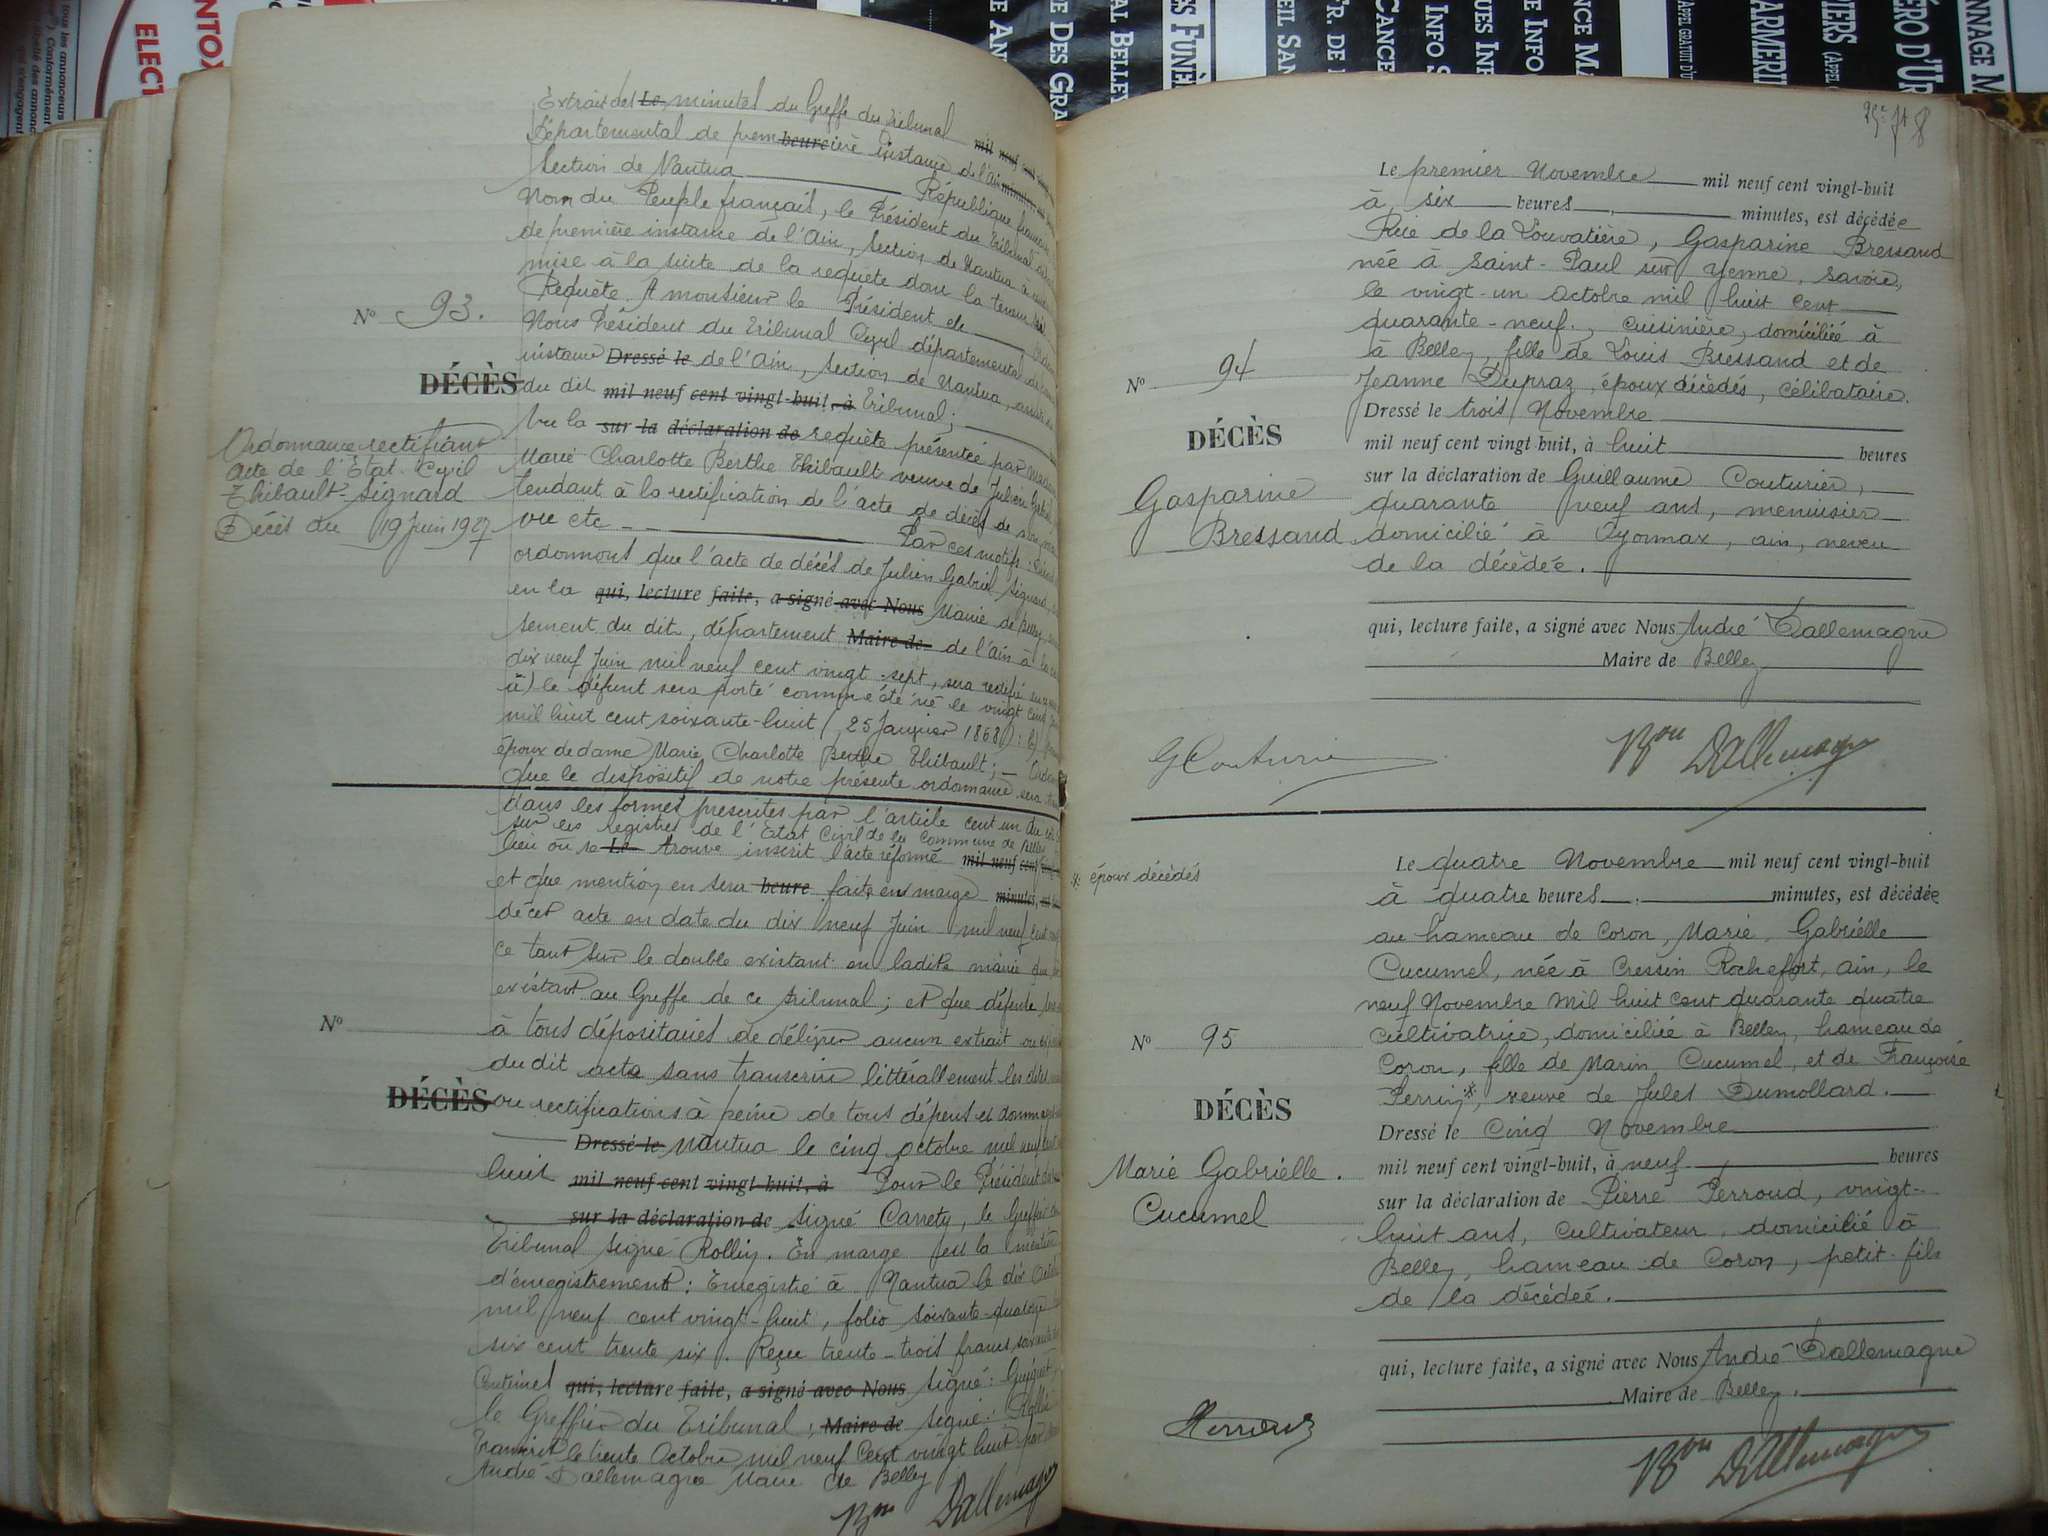 Extrait des Le minutes du Greffe du Tribunal mil neuf
Départemental de prem heure ière instance de l'Ain minutes
Section de Nantua République française
Nom du Peuple français, le Président du Tribunal
de première instance de l'Ain, Section de Nantua a
mise à la suite de la requête dont la teneur
Requête. A monsieur le Président etc
Nous Président du Tribunal Civil départemental de
instance Dressé le de l'Ain, Section de Nantua, assisté
du dit mil neuf cent vingt-huit, à Tribunal;
Vu la sur la déclaration de requête présentée par
Marie Charlotte Berthe Thibault veuve de Julien Gabriel
tendant à la rectification de l'acte de décès de
vu etc Par ces motifs
ordonnons que l'acte de décès de Julien Gabriel Signard
en la qui, lecture faite, a signé avec Nous Mairie de Belley
sement du dit, département Maire de de l'Ain à la
dix neuf Juin mil neuf cent vingt-sept, sera rectifié
a) le défunt sera porté comme été né le vingt cinq
mil huit cent soixante-huit (25 Janvier 1868) : b)
époux de dame Marie Charlotte Berthe Thibault; –
que le dispositif de notre présente ordonnance sera
dans les formes prescrites par l'article cent un du
sur les registres de l'Etat Civil de la Commune de Belley
lieu ou se Le trouve inscrit l'acte réformé mil neuf cent
et que mention en sera heure faite en marge minutes,
décès acte en date du dix neuf Juin mil neuf cent
ce tant sur le double existant en ladite mairie que
existant au Greffe de ce tribunal; et que défense
à tous dépositaires de délivrer aucun extrait ou
du dit acte sans transcrire littéralement les dites
ou rectifications à peine de tous dépens et
Dressé le Nantua le cinq octobre mil neuf cent
huit mil neuf cent vingt-huit, à Pour le Président
sur la déclaration de Signé Carrety, le Greffier
Tribunal signé Rollin. En marge est la mention
d'enregistrement : Enregistré à Nantua le dix Octobre
mil neuf cent vingt-huit, folio soixante-quatorze
six cent trente six. Reçu trente-trois francs soixante
Centimes qui, lecture faite, a signé avec Nous signé :
le Greffier du Tribunal ; Maire de signé :
Transcrit le trente Octobre mil neuf Cent vingt huit par
André Dallemagne Maire de Belley
Bon Dallemagne
No 93.
DÉCÈS
Ordonnance rectifiant
acte de l'Etat-Civil
Thibault-Signard
Décès du 19 Juin 1927
No
DÉCÈS
Le premier Novembre mil neuf cent vingt-huit
à six heures minutes, est décédée
Rue de la Louvatière, Gasparine Bressand
née à Saint-Paul sur Yenne, Savoie,
le vingt-un Octobre mil huit cent
quarante-neuf., cuisinière, domiciliée à
à Belley, fille de Louis Bressand et de
Jeanne Dupraz, époux décédés, célibataire.
Dressé le trois Novembre
mil neuf cent vingt-huit, à huit heures
sur la déclaration de Guillaume Couturier,
quarante neuf ans, menuisier
domicilié à Oyonnax, ain, neveu
de la décédée.
qui, lecture faite, a signé avec Nous André Dallemagne
Maire de Belley
GCouturier
Bon Dallemagne
No 94
DÉCÈS
Gasparine
Bressand
* époux décédés
Le quatre Novembre mil neuf cent vingt-huit
à quatre heures minutes, est décédée
au hameau de Coron, Marie, Gabriélle
Cucumel, née à Cressin Rochefort, ain, le
neuf Novembre mil huit cent quarante quatre
cultivatrice, domiciliée à Belley, hameau de
Coron, fille de Marin Cucumel, et de Françoise
Perrin*, veuve de Jules Dumollard.
Dressé le Cinq Novembre
mil neuf cent vingt-huit, à neuf heures
sur la déclaration de Pierre Perroud, vingt-
huit ans, cultivateur, domicilié à
Belley, hameau de Coron, petit-fils
de la décédée.
qui, lecture faite, a signé avec Nous André Dallemagne
Maire de Belley.
Bon Dallemagne
No 95
DÉCÈS
Marie Gabrielle.
Cucumel